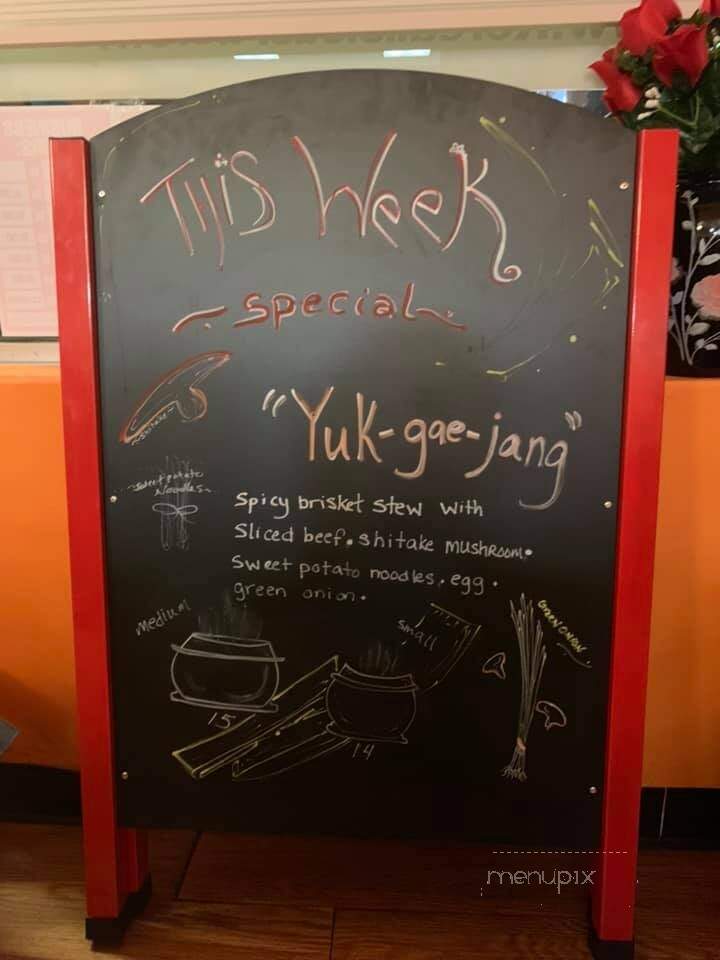 This Week
~special~
"Yuk-gae-jang"
~shitake~
~Sweet potato
Noodles~
Spicy brisket stew with
Sliced beef. shitake mushroom.
Sweet potato noodles. egg.
green onion.
medium
small
Green onion
15
14
menupix